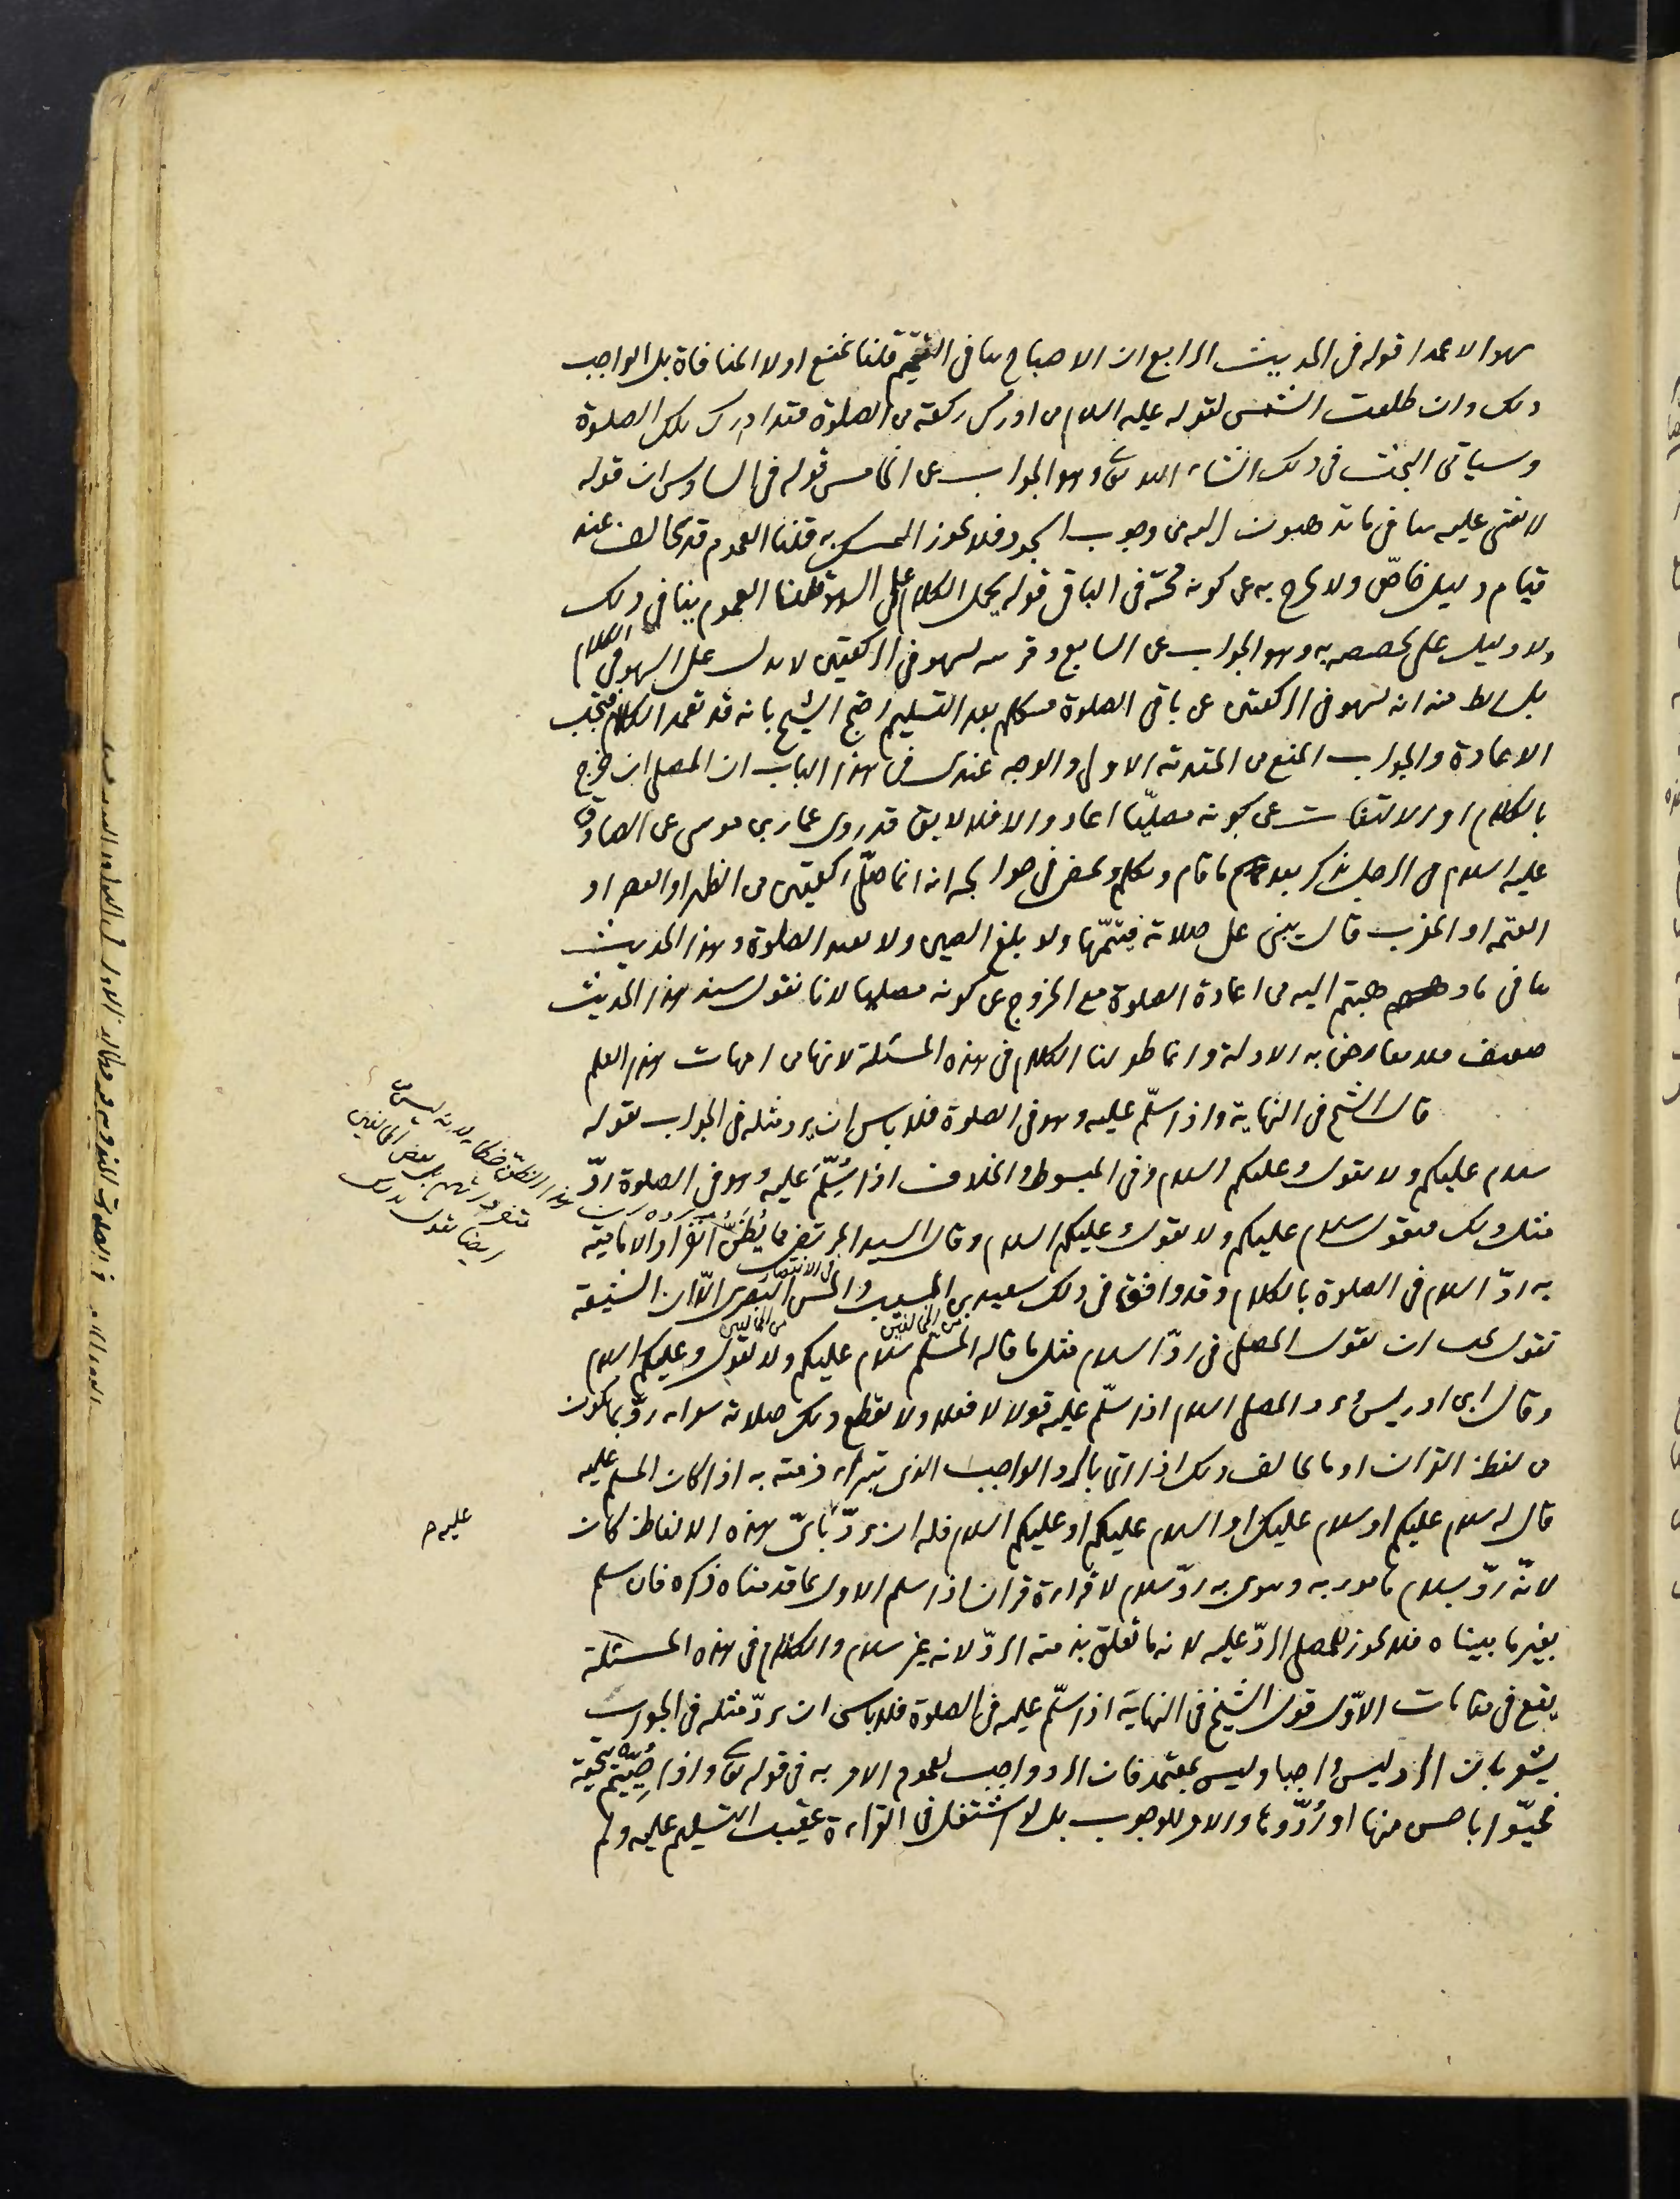 سهوا لا عمدا قوله في الحديث الرابع ان الاصباح ينافي التتميم قلنا نمنع اولا المنافاة بل الواجب
ذلك وان طلعت الشمس لقوله عليه السلام من ادرك ركعة من الصلوة فقد ادرك تلك الصلوة
وسياتي البحث في ذلك انشاء الله تعالى وهو الجواب عن الخامس قوله في السادس ان قوله
لا شئ عليه ينافي ما تذهبون اليه من وجوب السجود فلا يجوز التمسك به قلنا العموم قد يخالف عند
قيام دليل خاصّ ولا يخرج به عن كونه حجّة في الباقي قوله يحمل الكلام على السهو قلنا العموم ينافي ذلك
ولا دليل على تخصيصه به وهو الجواب عن السابع وقرينة السهو في الركعتين لا يدل على السهو في الكلام
بل الظ منه انه لسهوه في الركعتين عن باقي الصلوة تكلم بعد التسليم احتج الشيخ بانه قد تعمد الكلام فتجب
الاعادة والجواب المنع من المقدمة الاولى والوجه عندي في هذا الباب ان المصلي ان خرج
بالكلام او الالتفات عن كونه مصلّيا اعاد والا فلا لايق قد روى عمار بن موسى عن الصادق
عليه السلام في الرجل يذكر بعد ما قام وتكلم ومضى في حوايجه انه انما صلّى ركعتين من الظهر او العصر او
العتمة او المغرب قال يبني على صلاته فيتمّها ولو بلغ الصين ولا يعيد الصلوة وهذا الحديث
ينافي ما ذهبتم اليه من اعادة الصلوة مع الخروج عن كونه مصليا لانا نقول سند هذا الحديث
ضعيف فلا معارض به الادلة وانما طولنا الكلام في هذه المسئلة لانها من امهات هذا العلم
قال الشيخ في النهاية واذا سلّم عليه وهو في الصلوة فلا باس ان يرد مثله في الجواب بقوله
سلام عليكم ولا يقول وعليكم السلام وفي المبسوط والخلاف اذا سُلِّمَ عليه وهو في الصلوة ردّ
مثل ذلك فيقول سلام عليكم ولا يقول وعليكم السلام وقال السيد المرتضى مما يُظَنُّ انفراد الامامية
في الانتصار
به ردّ السلام في الصلوة بالكلام وقد وافقنا في ذلك سعيد بن المسيب والحسن البصري الّا ان الشيعة
من المخالفين من المخالفين
تقول يجب ان يقول المصلي في ردّ السلام مثل ما قاله المسلم سلام عليكم ولا يقول وعليكم السلام
وقال ابن ادريس يرد المصلي السلام اذا سلّم عليه قولا لا فعلا ولا يقطع ذلك صلاته سواء ردّ بما يكون
من لفظ القران او ما يخالف ذلك اذا اتى بالرد الواجب الذي تبراء ذمته به اذا كان المسلم عليه
قال له سلام عليكم او سلام عليك او السلام عليكم او عليكم السلام فله ان يردّ بايّ هذه الالفاظ كان
لانّه ردّ سلام مامور به وينوى به ردّ سلام لا قراءة قران اذا سلم الاول بما قدمناه ذكره فان سلم
بغير ما بيناه فلا يجوز للمصلي الردّ عليه لانه ما تعلق بذمته الردّ لانه غير سلام والكلام في هذه المسئلة
يقع في مقامات الاوّل قول الشيخ في النهاية اذا سلّم عليه في الصلوة فلا باس ان يردّ مثله في الجواب
يشعر بان الرد ليس واجبا وليس بمعتمد فان الرد واجب لعموم الامر به في قوله تعالى واذا حُيِّيتم بتحية
فحيّوا باحسن منها او رُدّوها والامر للوجوب بل لو اشتغل في القراءة عقيب التسليم عليه ولم
هذا النقل خطا لانه ليس
متفرداتهم بل بعض المخالفين
ايضا يقول بذلك
عليه م